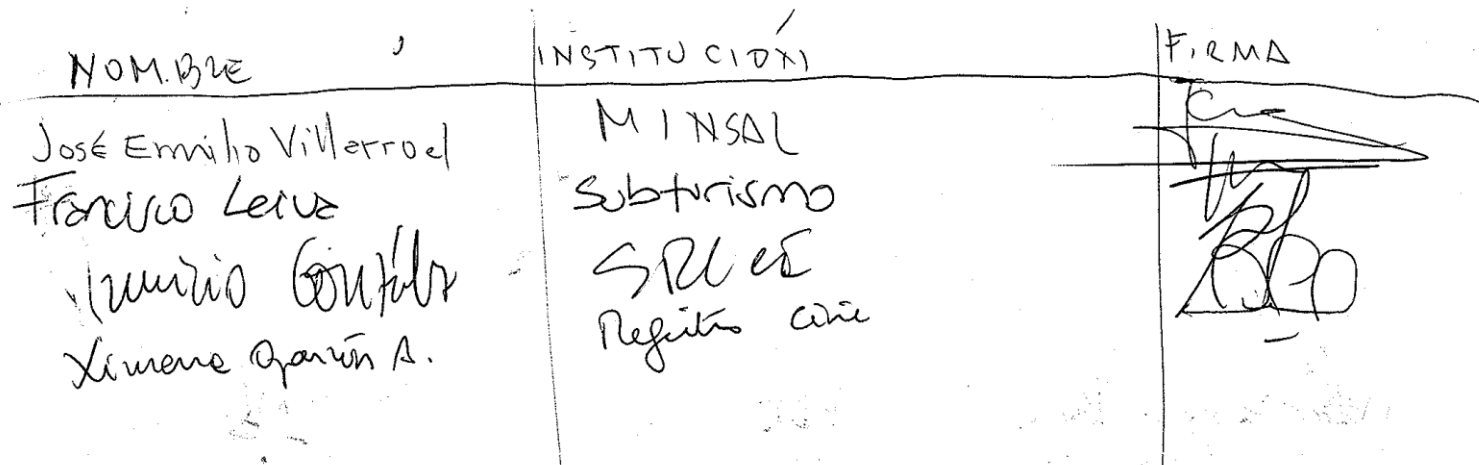 NOMBRE INSTITUCIÓN FIRMA
José Emilio Villarroel MINSAL
Francisco Leiva Subturismo
González SRCeI
Ximena A. Registro